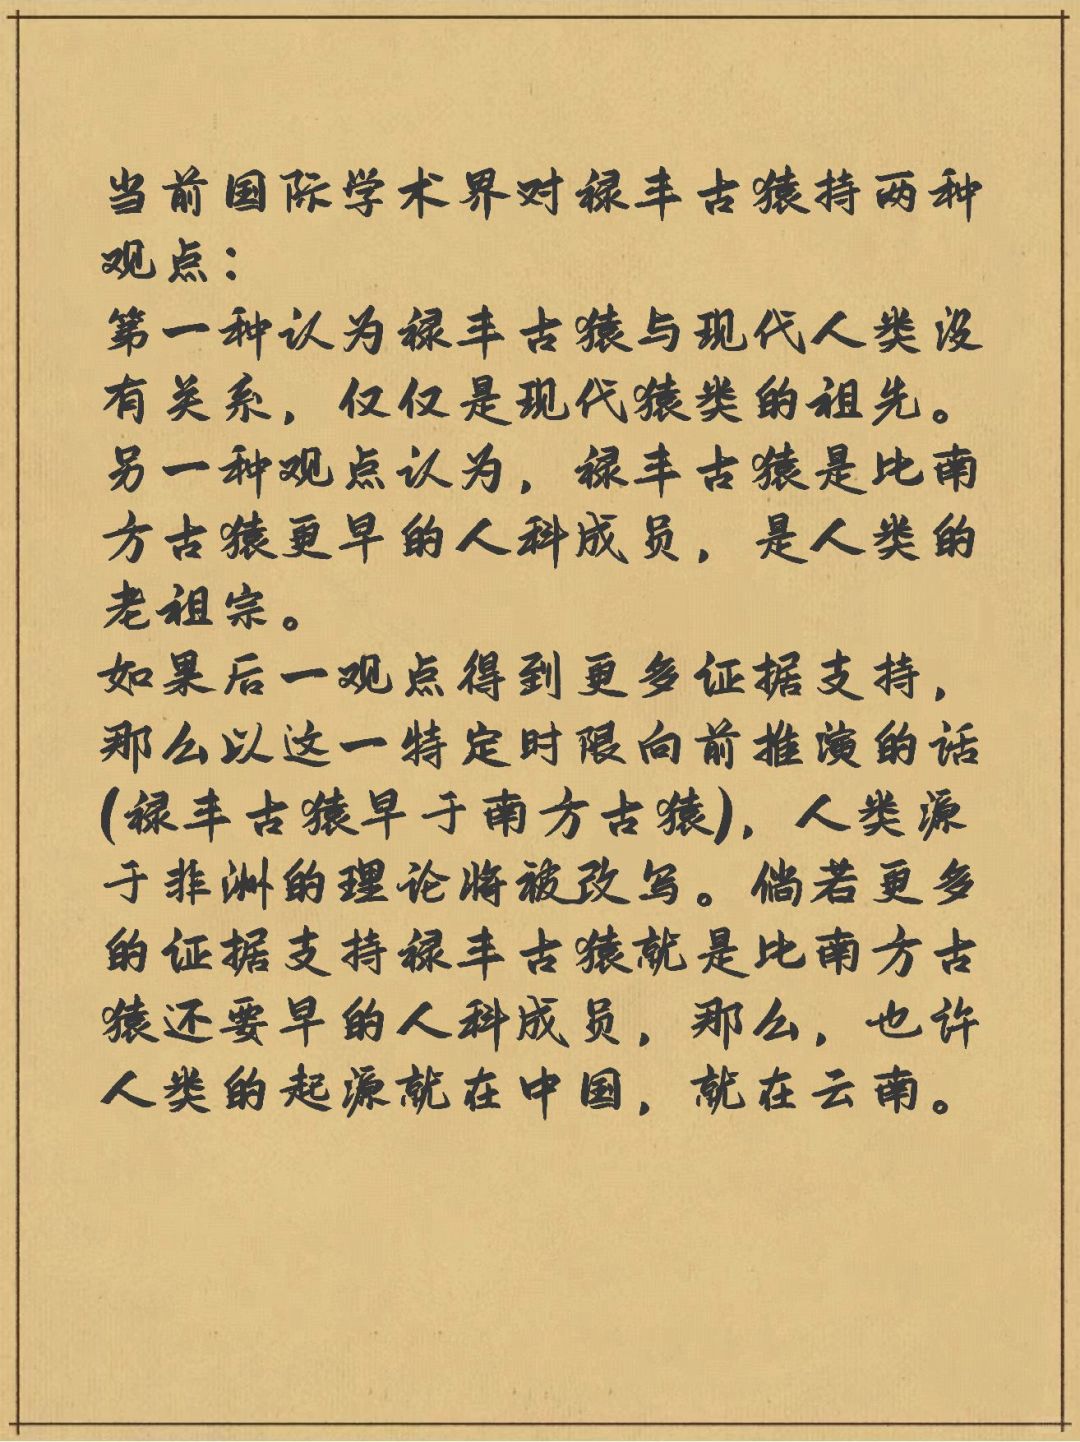 当前国际学术界对禄丰古猿持两种
观点：
第一种认为禄丰古猿与现代人类没
有关系，仅仅是现代猿类的祖先。
另一种观点认为，禄丰古猿是比南
方古猿更早的人科成员，是人类的
老祖宗。
如果后一观点得到更多证据支持，
那么以这一特定时限向前推演的话
(禄丰古猿早于南方古猿)，人类源
于非洲的理论将被改写。倘若更多
的证据支持禄丰古猿就是比南方古
猿还要早的人科成员，那么，也许
人类的起源就在中国，就在云南。